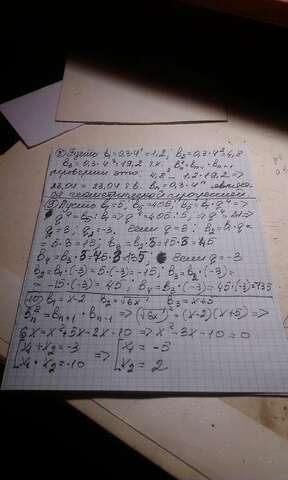 8) Пусть b₁=0,3·4¹=1,2; b₂=0,3·4²=4,8
b₃=0,3·4³=19,2 т.к. b²ₙ=bₙ₋₁·bₙ₊₁
проверим это: 4,8 = 1,2·19,2 =>
23,04 = 23,04 т.е. bₙ=0,3·4ⁿ
геометрической прогрессией
9) b₁=5; b₅=405; b₅=b₁·q⁴ =>
q⁴=b₅:b₁ => q⁴=405:5; => q⁴=81=>
q=3; q=-3. если q=3; b₂=b₁·q=
=5·3=15; b₃=b₂·3=15·3=45
b₄=b₃·3=45·3=135; если q=-3
b₂=b₁·(-3)=5·(-3)=-15; b₃=b₂·(-3)=
=-15·(-3)=45; b₄=b₃·(-3)=45·(-3)=-135
10) b₁=x-2 b₂=√6x b₃=x+5
b²ₙ=bₙ₊₁·bₙ₋₁ => (√6x)²=(x-2)(x+5)=>
6x=x²+5x-2x-10 => x²-3x-10=0
[x₁+x₂=-3 => [x₁=-5
[x₁·x₂=-10 [x₂=2